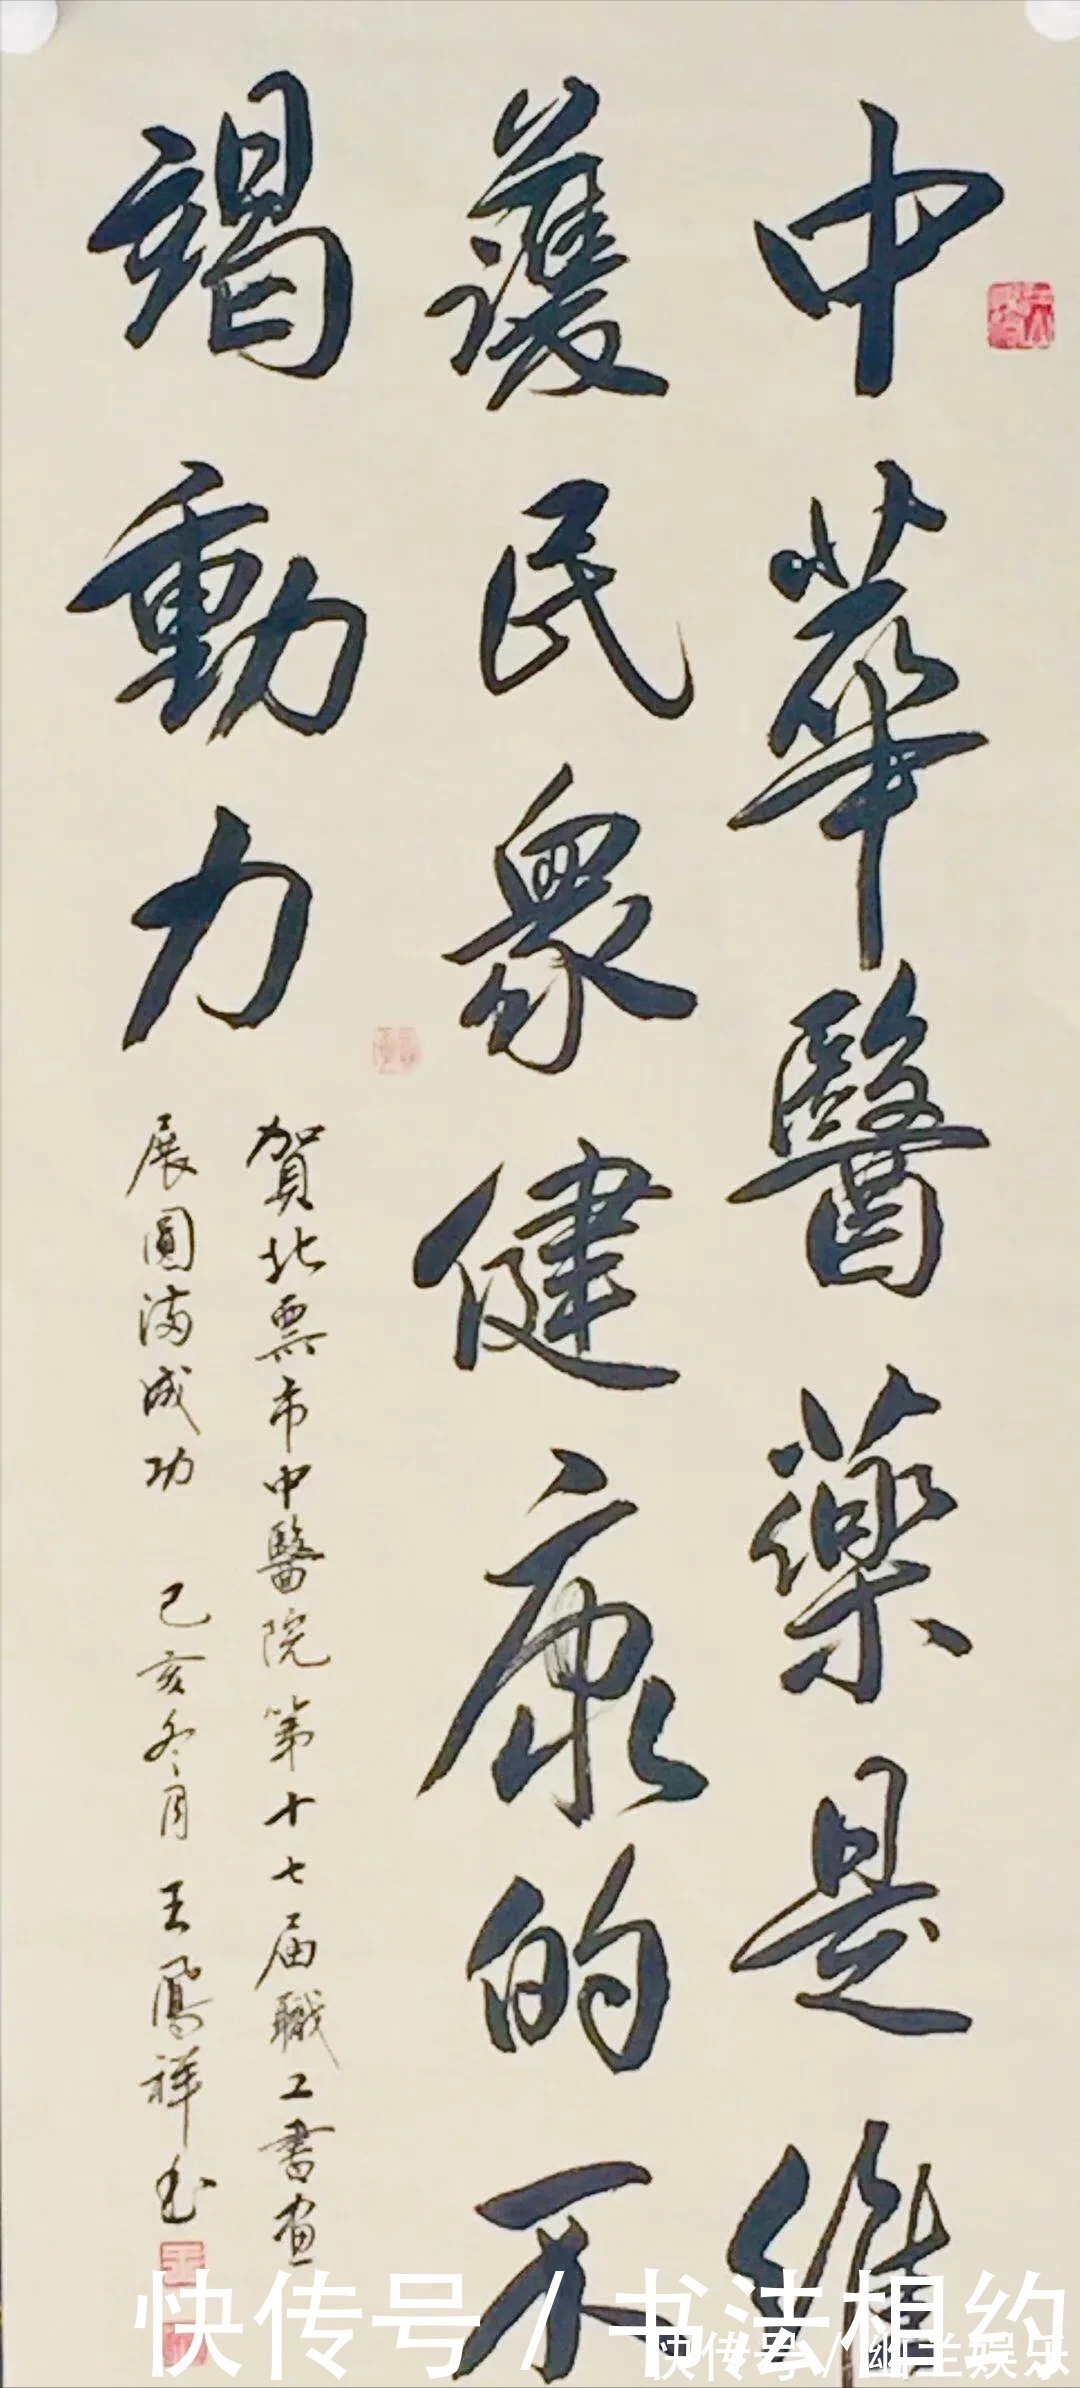 中華醫藥是維
護民衆健康的不
竭動力
賀北票市中醫院第十七届職工書画
展圓滿成功 己亥冬月 王鳳祥书
快传号 / 书法相约
快传号 / 幽兰娱乐